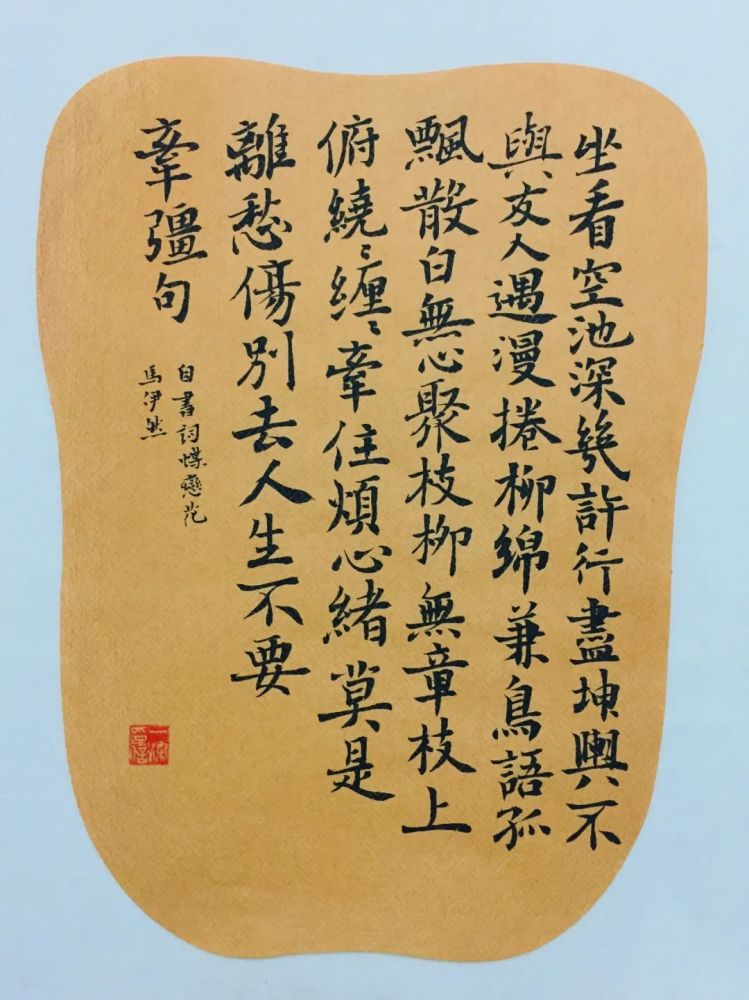 坐看空池深幾許行盡坤輿不
與友人遇漫捲柳綿兼鳥語孤
飄散白無心聚枝柳無章枝上
俯繞〻纏〻牽住煩心緒莫是
離愁傷別去人生不要
牽彊句
自書詞蝶戀花
馬伊然